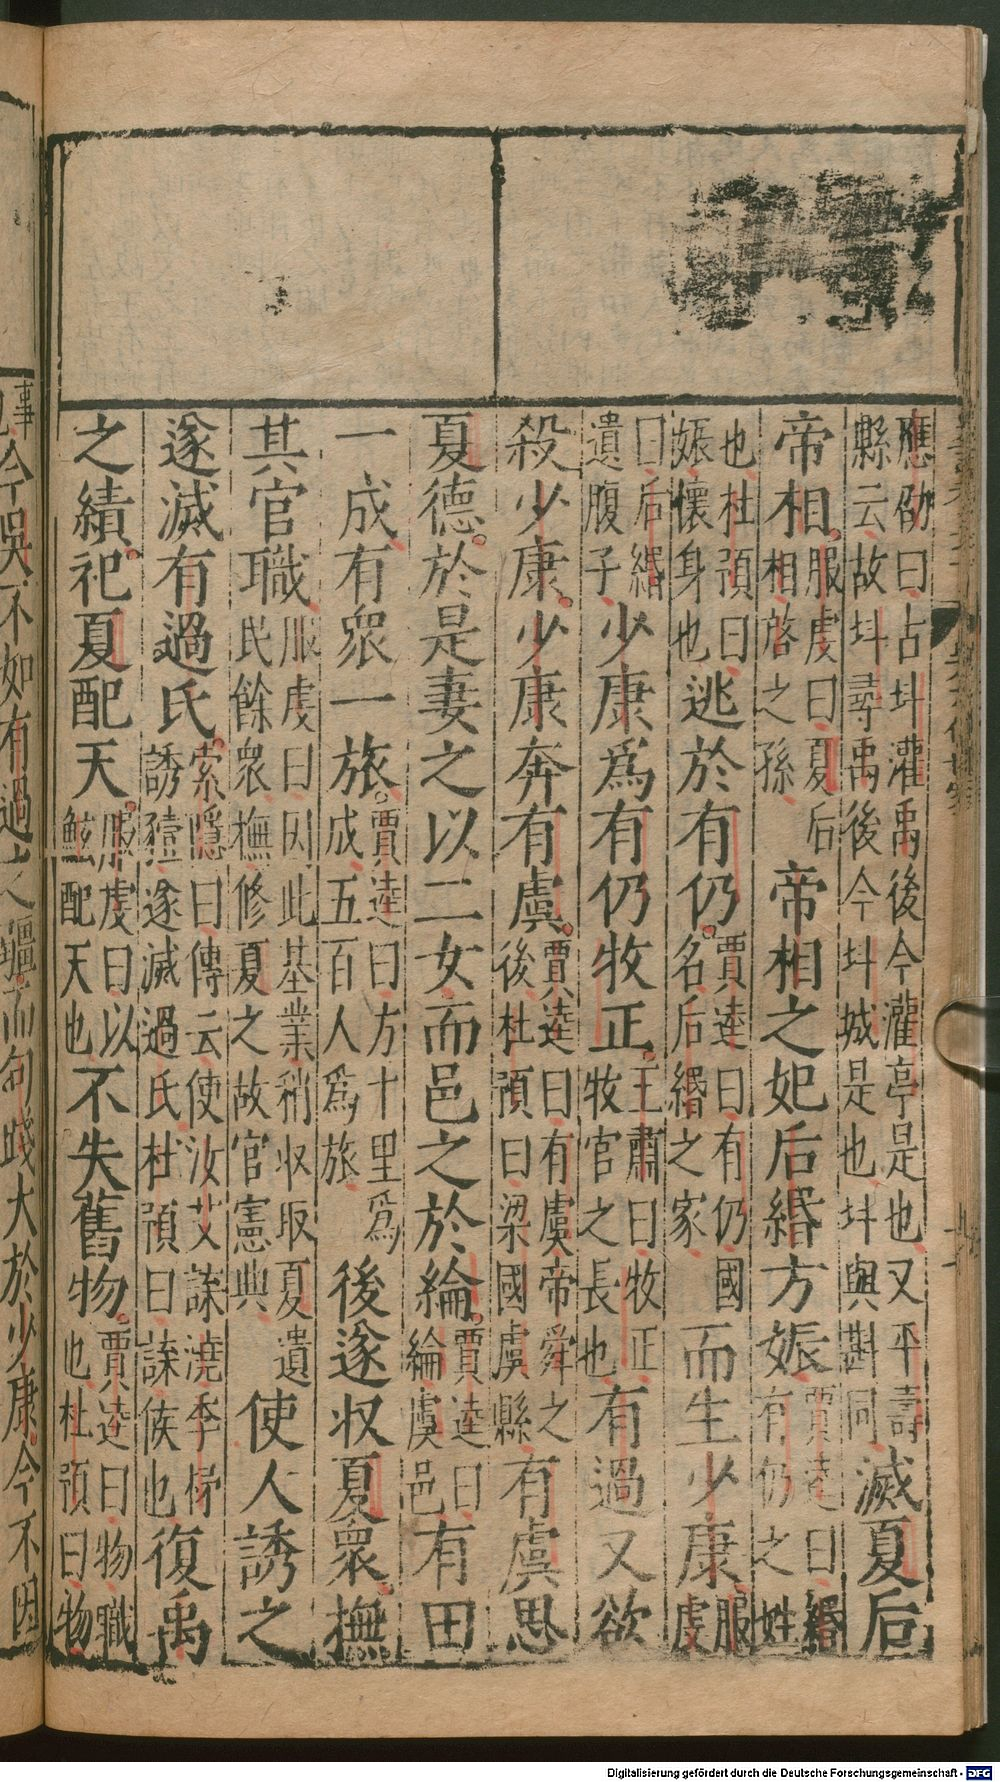 應劭曰古抖灌禹後今灌亭是也又平壽縣云故抖尋禹後今抖城是也抖與斟同滅夏后
帝相。服虔曰夏后相啓之孫帝相之妃后緡方娠賈逵曰緡有仍之姓
也杜預曰娠懷身也逃於有仍。賈逵曰有仍國名后緡之家而生少康服虔
曰后緡遺腹子少康爲有仍牧正王肅曰牧正牧官之長也有過又欲
殺少康。少康奔有虞。賈逵曰有虞帝舜之後杜預曰梁國虞縣有虞思
夏德。於是妻之以二女而邑之於綸。賈逵曰綸虞邑有田
一成有衆一旅。賈逵曰方十里爲成五百人爲旅後遂収夏衆撫
其官職服虔曰因此基業稍収取夏遺民餘衆撫修夏之故官憲典使人誘之
遂滅有過氏索隱曰傳云使汝艾諜澆季杼誘豷遂滅過氏杜預曰諜候也復禹
之績。祀夏配天。服虔曰以鮌配天也不失舊物。賈逵曰物職也杜預曰物
事也今吳不如有過之彊而句踐大於少康今不因
Digitalisierung gefördert durch die Deutsche Forschungsgemeinschaft - DFG